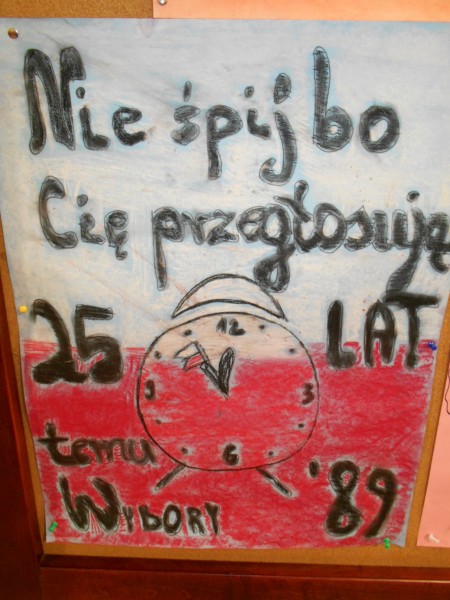 Nie śpij bo
Cię przegłosują
25 LAT
12
9 3
6
temu
WYBORY '89